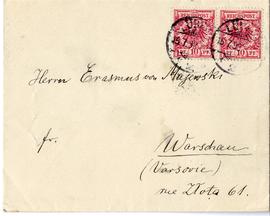 REICHSPOST REICHSPOST
10 PF 10 10 PF 10
Herrn Erasmus von Majewski
fr.
Warschau
(Varsovie)
rue Złota 61.